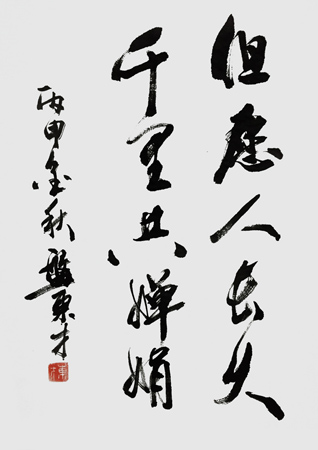 但愿人长久
千里共嬋娟
丙申金秋盤東才